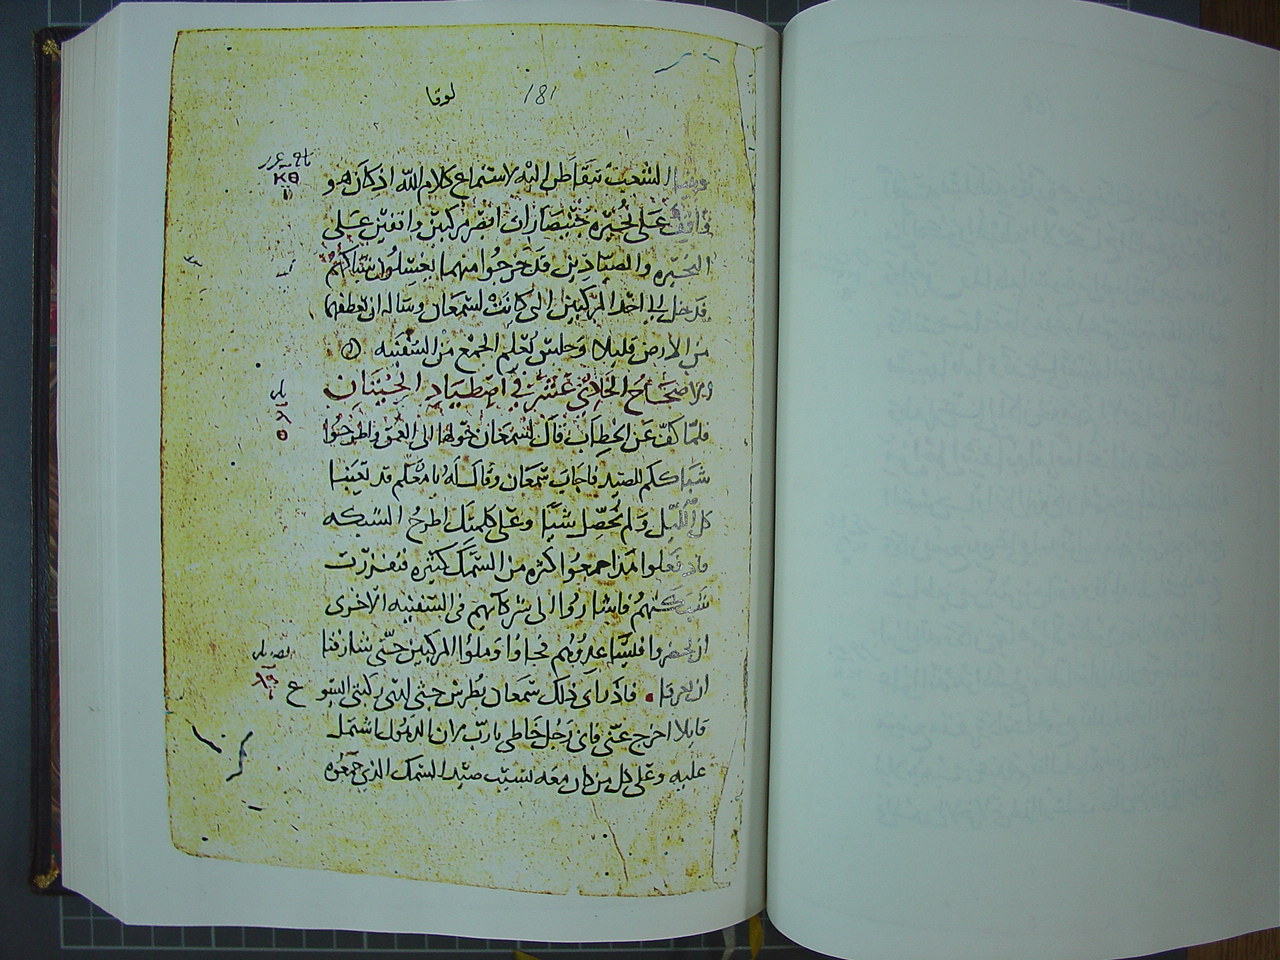 لوقا 181
الشعب تتقاطر اليه لاستماع كلام الله اذ كان هو
KΘ
واقف على بحيره ابصر مركبين واقفين على
البحيره والصيادين قد خرجوا منهما يغسلون شباكهم
فدخل الى احد المركبين التى كانت لسمعان وساله ان
من الارض قليلا وجلس يعلم الجمع من السفينه
الاصحاح الحادى عشر فى اصطياد الحيتان
فلما كف عن الخطاب قال لسمعان الى العمق واطرحوا
شباككم للصيد فاجاب سمعان وقال له يا معلم قد تعبنا
كل الليل ولم نحصل شيا وعلى كلمتك اطرح الشبكه
فاذ فعلوا هذا جمعوا كثره من السمك كثيره فتفزرت
شبكتهم فاشاروا الى شركآئهم فى السفينه الاخرى
ان يحضروا فجاوا وملؤا المركبين حتى شارفتا
ان تغرقا فاذ راى ذلك سمعان بطرس جثى لدى ركبتى
قايلا اخرج عنى فانى رجل خاطى يارب لان الذهول اشتمل
عليه وعلى كل من كان معه بسبب صيد السمك الذى جمعوه